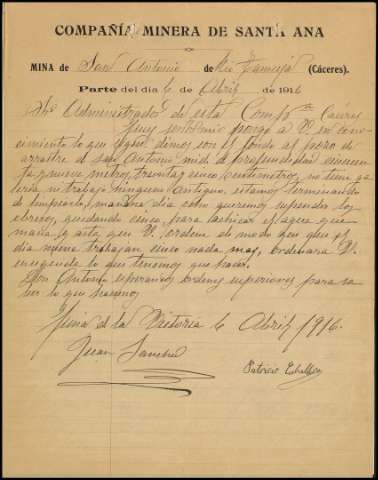 COMPAÑÍA MINERA DE SANTA ANA
MINA de San Antonio de Rio Tamuja (Cáceres).
Parte del día 6 de Abril de 1916
Sr Administrador de esta Comp.ª Cáceres
Muy señor mio pongo a V. en cono-
cimiento lo que sigue dimos con el fondo al pozo de
arrastre el san Antonio mide de profundidad cincuen
ta y nueve metros, treinta y cinco centimetros, no tiene ga
leria ni trabajo ninguno Antiguo, estamos terminando
de limpiarlo, mañana dia ocho queremos suspender los
obreros, quedando cinco, para achicar el agua que
mana y asta que V. ordene de modo que el
dia nueve trabajan cinco nada mas, ordenara V.
enseguida lo que tenemos que hacer.
Don Antonio esperando ordenes superiores para sa
ber lo que hacemos
Mina de la Victoria 6 Abril 1916.
Juan Sanchez
Patricio Caballero